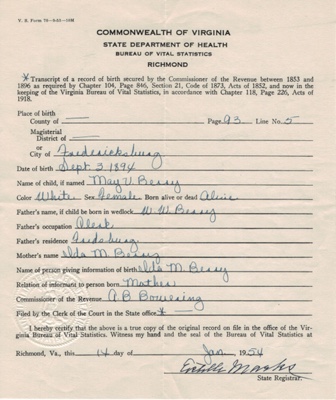 V. S. Form 76—9-53—10M
COMMONWEALTH OF VIRGINIA
STATE DEPARTMENT OF HEALTH
BUREAU OF VITAL STATISTICS
RICHMOND
*Transcript of a record of birth secured by the Commissioner of the Revenue between 1853 and
1896 as required by Chapter 104, Page 846, Section 21, Code of 1873, Acts of 1852, and now in
the keeping of the Virginia Bureau of Vital Statistics, in accordance with Chapter 118, Page 226, Acts of
1918.
Place of birth
County of — Page 93 Line No. 5
Magisterial
District of —
or
City of Fredericksburg
Date of birth Sept 3 1894
Name of child, if named May V. Berry
Color White Sex Female Born alive or dead Alive
Father's name, if child be born in wedlock W. W. Berry
Father's occupation Clerk
Father's residence Fredsburg
Mother's name Ida M. Berry
Name of person giving information of birth Ida M. Berry
Relation of informant to person born Mother
Commissioner of the Revenue A B Bowering
Filed by the Clerk of the Court in the State office * —
I hereby certify that the above is a true copy of the original record on file in the office of the Vir-
ginia Bureau of Vital Statistics. Witness my hand and the seal of the Bureau of Vital Statistics at
Richmond, Va., this 14 day of Jan 1954
Estelle Marks
State Registrar.